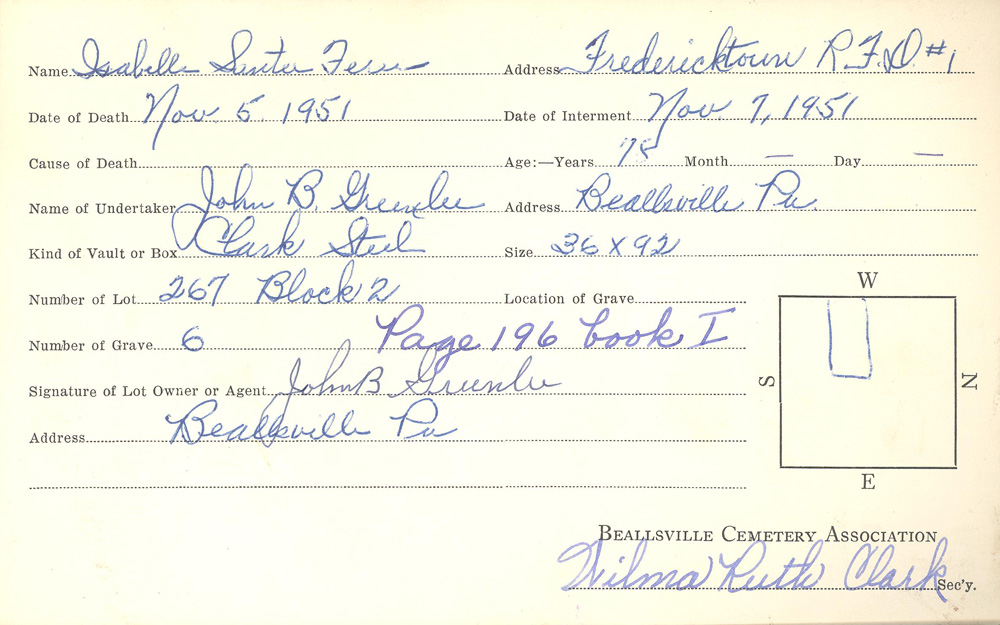 Name Isabelle
Address Fredericktown R.F.D. #1
Date of Death Nov 5 1951
Date of Interment Nov. 7, 1951
Cause of Death
Age:—Years 75 Month — Day —
Name of Undertaker John B. Greenlee
Address Beallsville Pa.
Kind of Vault or Box Clark Steel
Size 36 x 92
Number of Lot 267 Block 2
Location of Grave
W
Number of Grave 6 Page 196 book I
Signature of Lot Owner or Agent John B Greenlee
S
N
Address Beallsville Pa
E
BEALLSVILLE CEMETERY ASSOCIATION
Wilma Ruth Clark Sec'y.